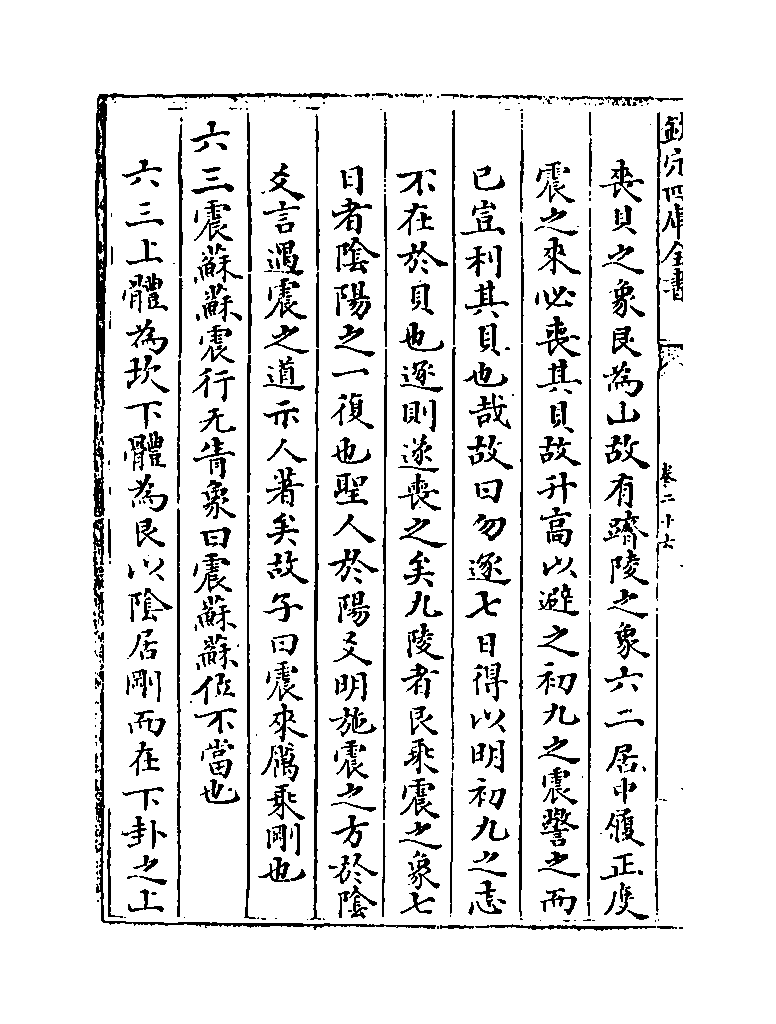 欽定四庫全書
卷二十七
喪貝之象艮為山故有躋陵之象六二居中履正度
震之來必喪其貝故升高以避之初九之震讋之而
已豈利其貝也哉故曰勿逐七日得以明初九之志
不在於貝也逐則遂喪之矣九陵者艮乘震之象七
日者陰陽之一復也聖人於陽爻明施震之方於陰
爻言遇震之道示人著矣故子曰震來厲乘剛也
六三震蘇蘇震行无眚象曰震蘇蘇位不當也
六三上體為坎下體為艮以陰居剛而在下卦之上